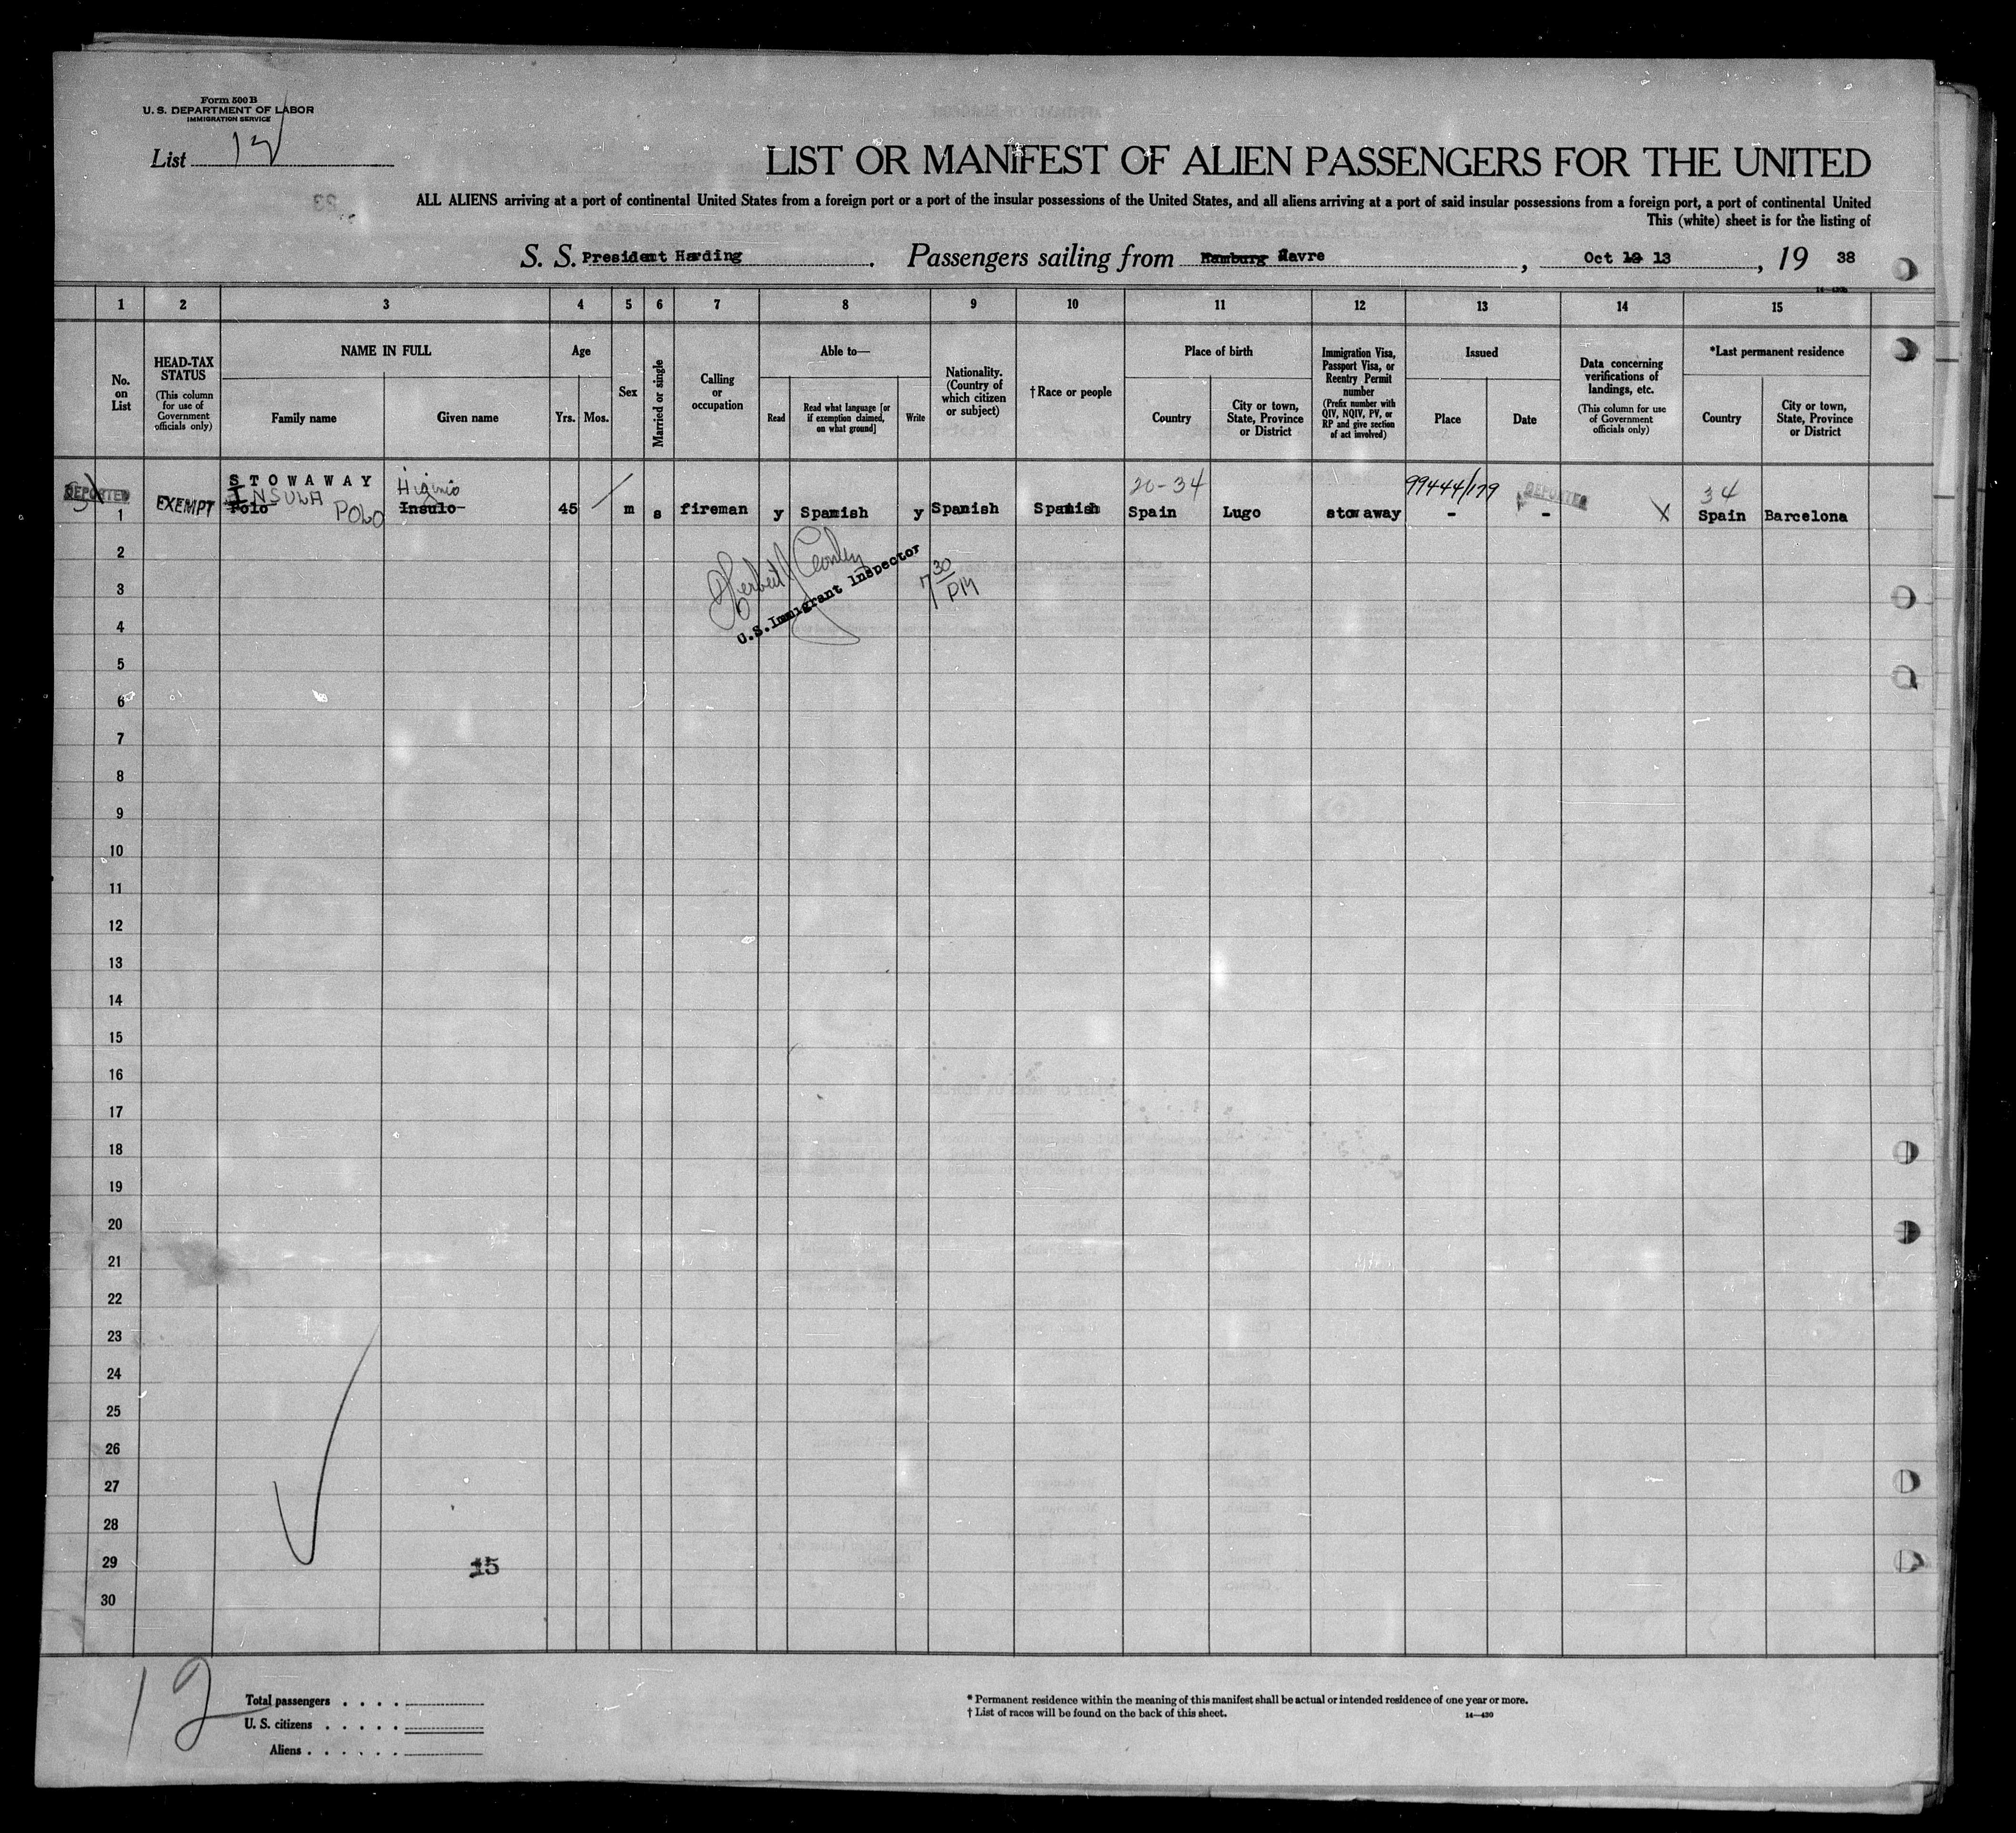 Form 500 B
U. S. DEPARTMENT OF LABOR
IMMIGRATION SERVICE
List 12
LIST OR MANIFEST OF ALIEN PASSENGERS FOR THE UNITED
ALL ALIENS arriving at a port of continental United States from a foreign port or a port of the insular possessions of the United States, and all aliens arriving at a port of said insular possessions from a foreign port, a port of continental United
This (white) sheet is for the listing of
S. S. President Harding. Passengers sailing from Hamburg Havre, Oct 12 13, 19 38
1 2 3 4 5 6 7 8 9 10 11 12 13 14 15
No. on List
HEAD-TAX STATUS
(This column for use of Government officials only)
NAME IN FULL
Family name
Given name
Age
Yrs. Mos.
Sex
Married or single
Calling or occupation
Able to—
Read
Read what language [or if exemption claimed, on what ground]
Write
Nationality. (Country of which citizen or subject)
†Race or people
Place of birth
Country
City or town, State, Province or District
Immigration Visa, Passport Visa, or Reentry Permit number
(Prefix number with QIV, NQIV, PV, or RP and give section of act involved)
Issued
Place
Date
Data concerning verifications of landings, etc.
(This column for use of Government officials only)
*Last permanent residence
Country
City or town, State, Province or District
STOWAWAY
DEPORTED
INSULA POLO Higinio 20-34 99444/179 DEPORTED 34
1 EXEMPT Polo Insulo 45 m s fireman y Spanish y Spanish Spanish Spain Lugo stowaway - - X Spain Barcelona
2
Herbert
U.S. Immigrant Inspector
7 30 PM
3
4
5
6
7
8
9
10
11
12
13
14
15
16
17
18
19
20
21
22
23
24
25
26
27
28
29
15
30
12
Total passengers . . . .
U. S. citizens . . . . .
Aliens . . . . . .
* Permanent residence within the meaning of this manifest shall be actual or intended residence of one year or more.
† List of races will be found on the back of this sheet.
14—430